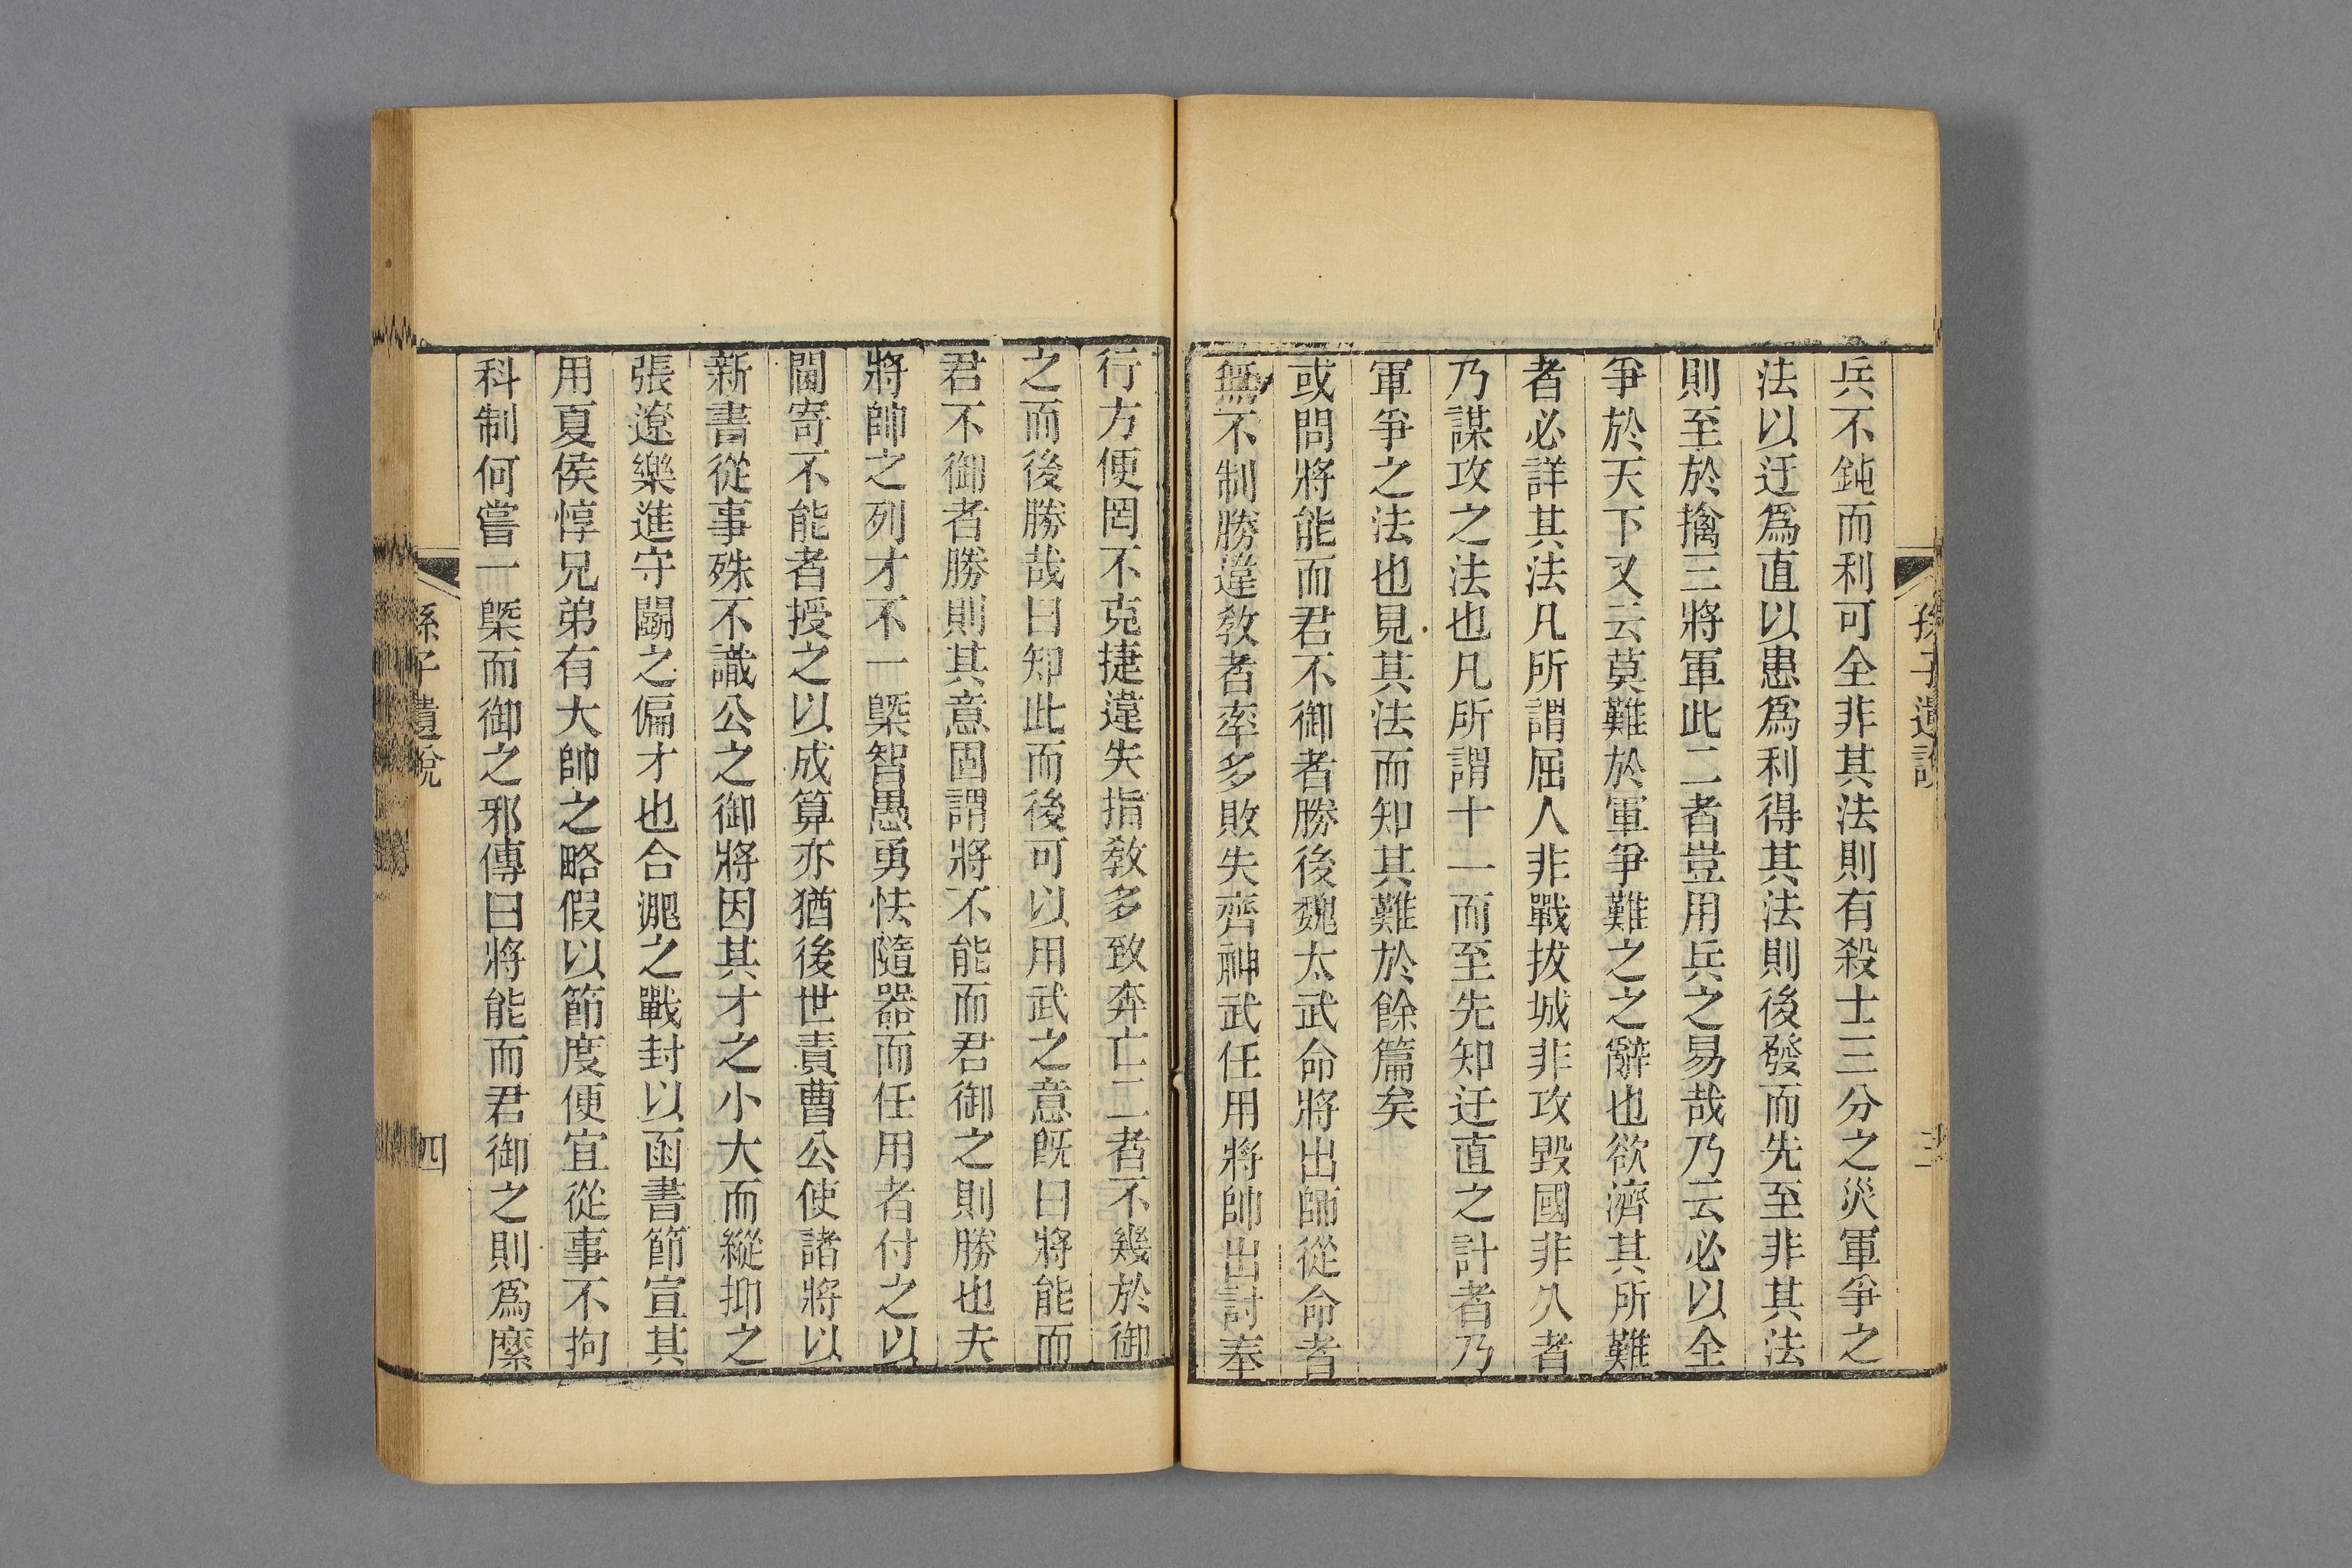 兵不鈍而利可全非其法則有殺士三分之災軍爭之
法以迂爲直以患爲利得其法則後發而先至非其法
則至於擒三將軍此二者豈用兵之易哉乃云必以全
爭於天下又云莫難於軍爭難之之辭也欲濟其所難
者必詳其法凡所謂屈人非戰拔城非攻毀國非久者
乃謀攻之法也凡所謂十一而至先知迂直之計者乃
軍爭之法也見其法而知其難於餘篇矣
或問將能而君不御者勝後魏太武命將出師從命者
無不制勝違敎者率多敗失齊神武任用將帥出討奉
行方便罔不克捷違失指敎多致奔亡二者不幾於御
之而後勝哉曰知此而後可以用武之意旣曰將能而
君不御者勝則其意固謂將不能而君御之則勝也夫
將帥之列才不一槩智愚勇怯隨器而任用者付之以
閫寄不能者授之以成算亦猶後世責曹公使諸將以
新書從事殊不識公之御將因其才之小大而縱抑之
張遼樂進守鬬之偏才也合淝之戰封以函書節宣其
用夏侯惇兄弟有大帥之略假以節度便宜從事不拘
科制何嘗一槩而御之邪傳曰將能而君御之則爲縻
孫子遺說
四